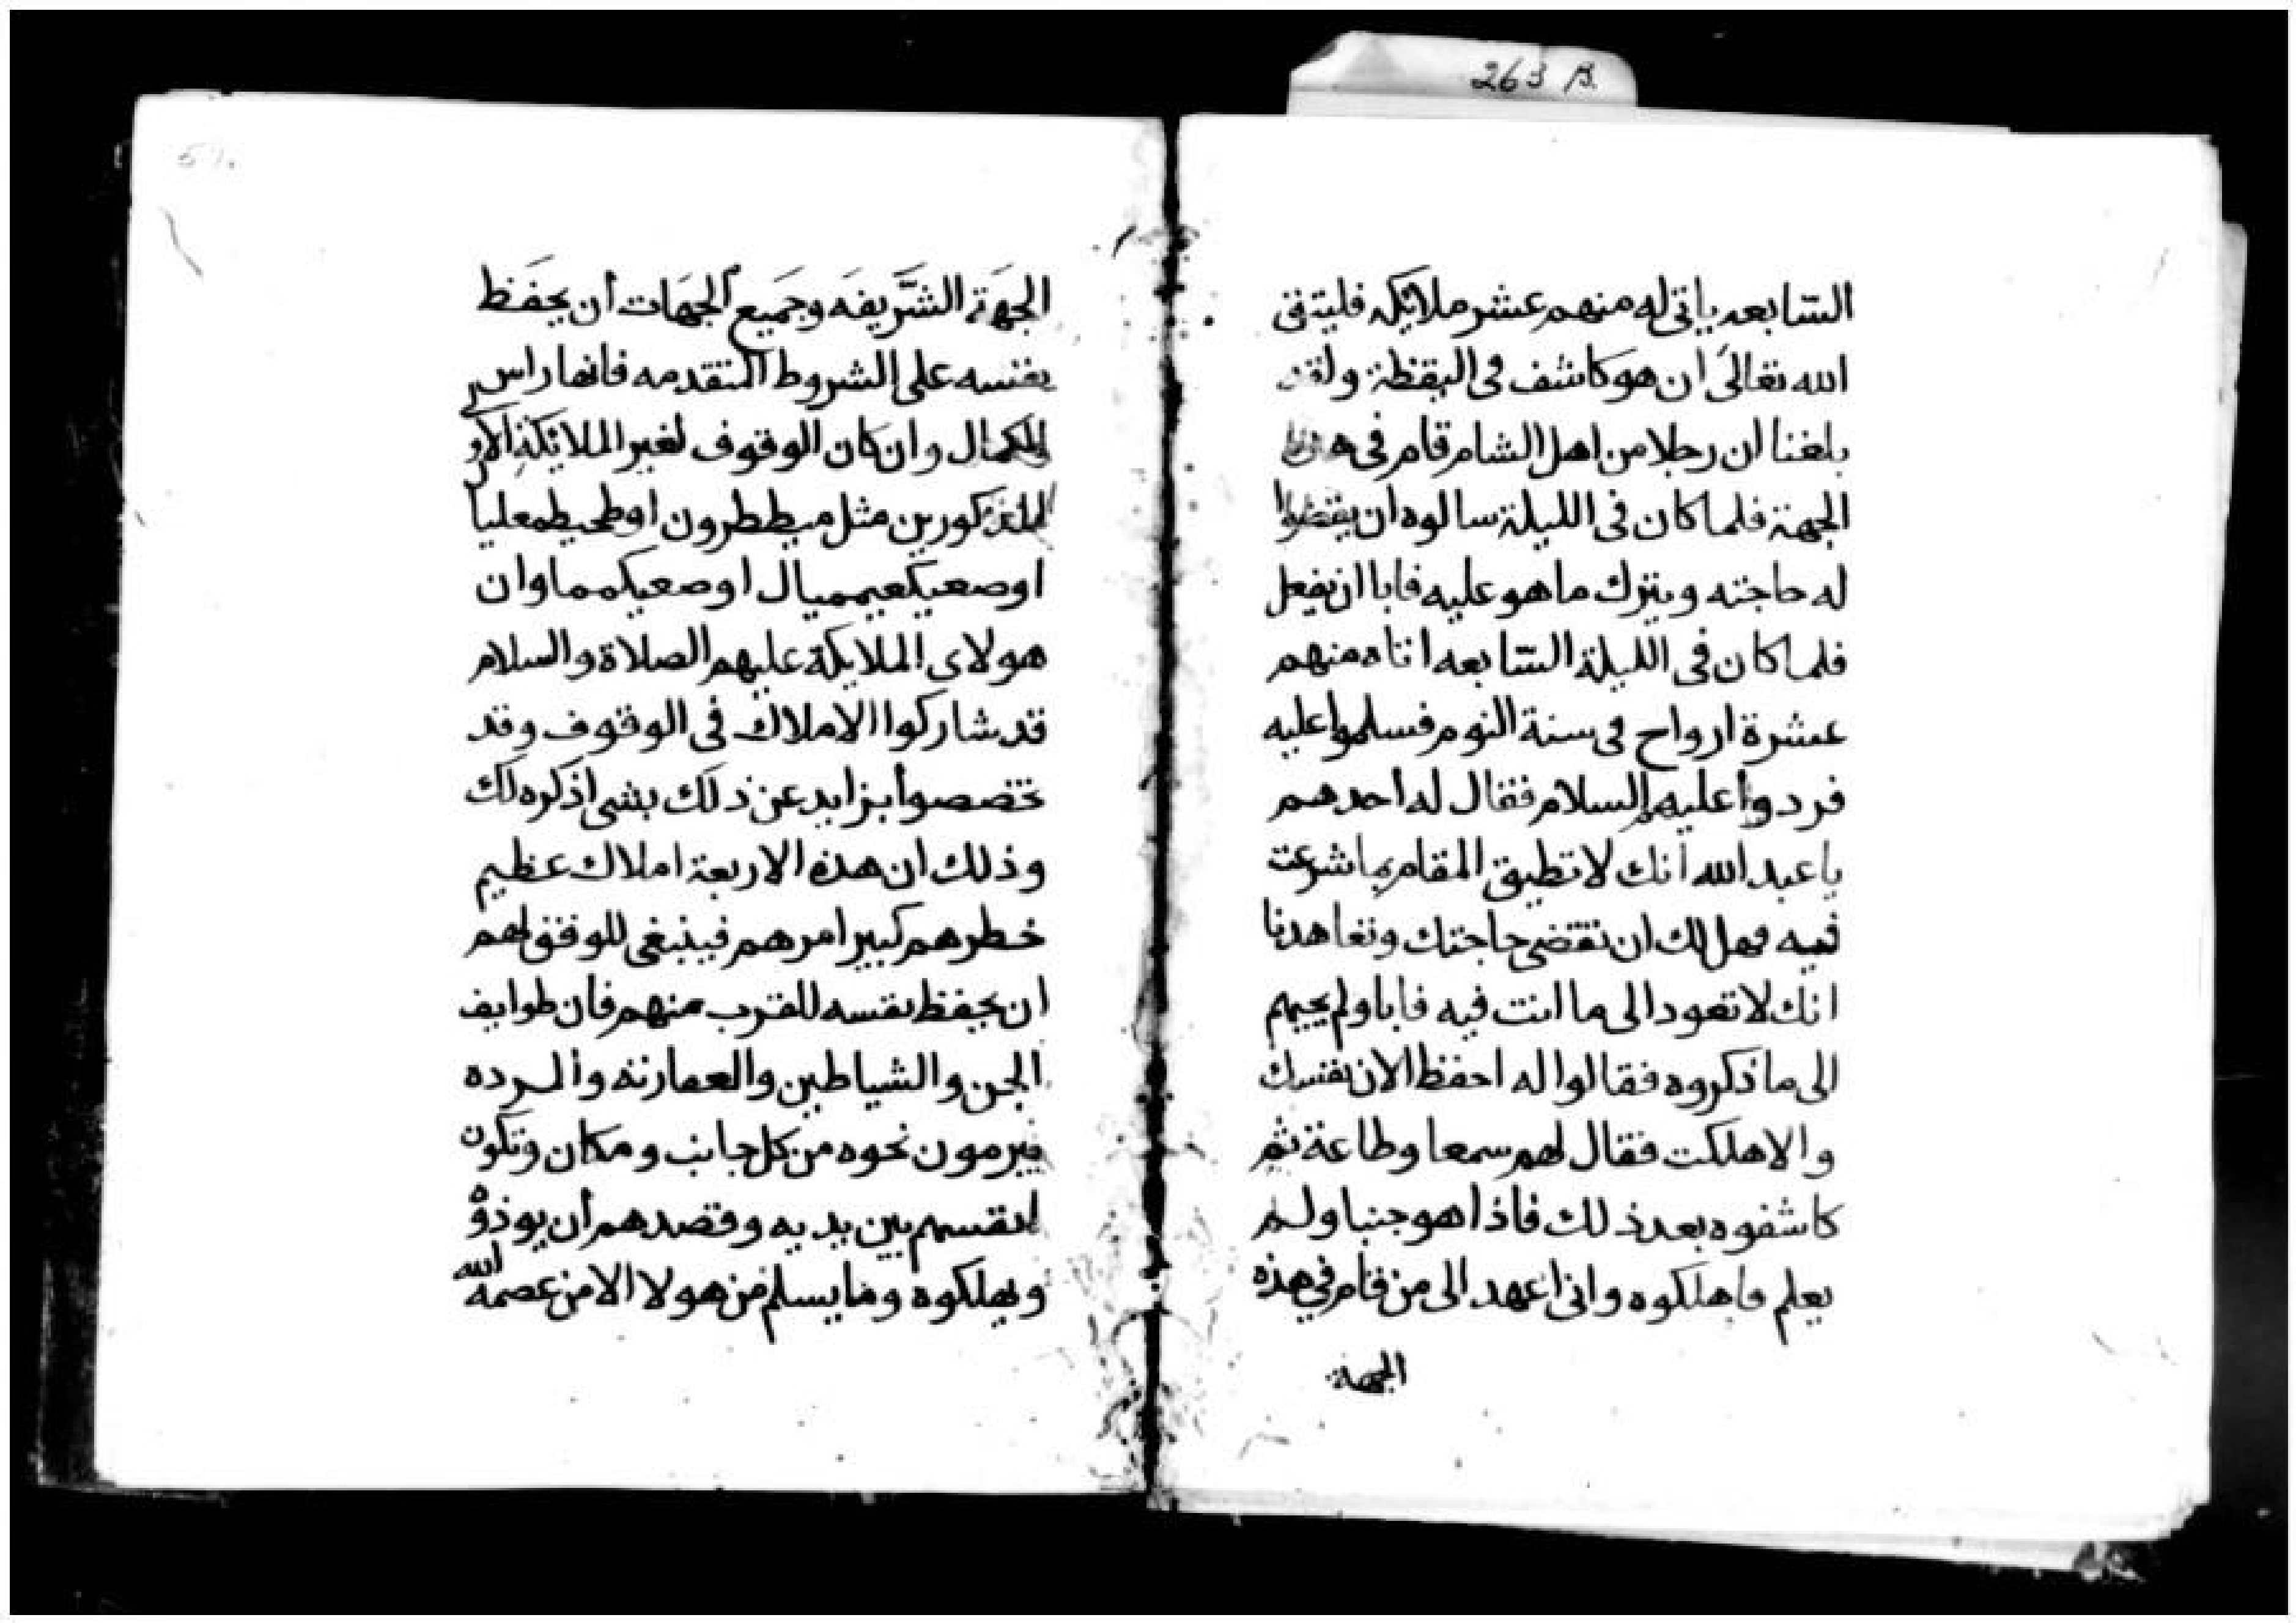 263 B.
السابعه ياتى له منهم عشر ملايكه فليتقى
الله تعالى ان هو كاشف فى اليقظة ولقد
بلغنا ان رجلا من اهل الشام قام فى هذه
الجهة فلما كان فى الليلة سالوه ان يقضوا
له حاجته ويترك ما هو عليه فابا ان يفعل
فلما كان فى الليلة السابعه اتاه منهم
عشرة ارواح فى سنة النوم فسلموا عليه
فردوا عليهم السلام فقال له احدهم
يا عبد الله انك لا تطيق المقام بما شرعت
فيه فهل لك ان نقضى حاجتك وتعاهدنا
انك لا تعود الى ما انت فيه فابا ولم يجيبهم
الى ما ذكروه فقالوا له احفظ الان نفسك
والا هلكت فقال لهم سمعا وطاعة ثم
كاشفوه بعد ذلك فاذا هو جنبا ولم
يعلم فاهلكوه وانى اعهد الى من قام في هذه
الجهة
الجهة الشريفه وجميع الجهات أن يحفظ
نفسه على الشروط المتقدمه فانها راس
الكمال وان كان الوقوف لغير الملائكة
المذكورين مثل ميططرون او طحيطمعليا
او صعيكعيمميال او صعيكمما وان
هولاى الملايكة عليهم الصلاة والسلام
قد شاركوا الاملاك فى الوقوف وقد
تخصصوا بزايد عن ذلك بشى اذكره لك
وذلك ان هذه الاربعة املاك عظيم
خطرهم كبير امرهم فينبغى للوقوف لهم
ان يحفظ نفسه للقرب منهم فان طوايف
الجن والشياطين والعمارته والمرده
يرمون نحوه من كل جانب ومكان وتكون
انفسهم بين يديه وقصدهم أن يوذوه
ويهلكوه وما يسلم من هولا الا من عصمه الله